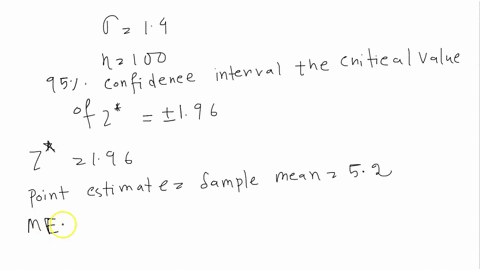 σ = 1.4
n = 100
95% confidence interval the critical value
of Z* = ±1.96
Z* = 1.96
Point estimate = Sample mean = 5.2
ME.